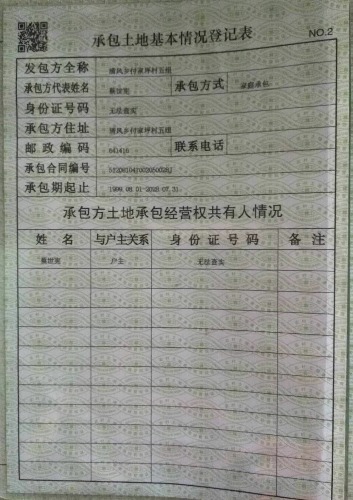 承包土地基本情况登记表
NO.2
发包方全称 清风乡付家坪村五组
承包方代表姓名 承包方式 家庭承包
身份证号码 无法查实
承包方住址 清风乡付家坪村五组
邮政编码 641416 联系电话
承包合同编号
承包期起止 1999.08.01-2028.07.31
承包方土地承包经营权共有人情况
姓名 与户主关系 身份证号码 备注
户主 无法查实